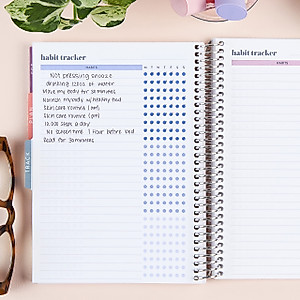 habit tracker
HABITS
M T W T F S S
Not pressing snooze
drinking 120oz of water
Move my body for 30 minutes
Nourish my body w/ healthy food
Skin care routine (am)
Skin care routine (pm)
10,000 steps a day
No screen time 1 hour before bed
Read for 30 minutes
PLAN
TRACK
habit tracker
HABITS